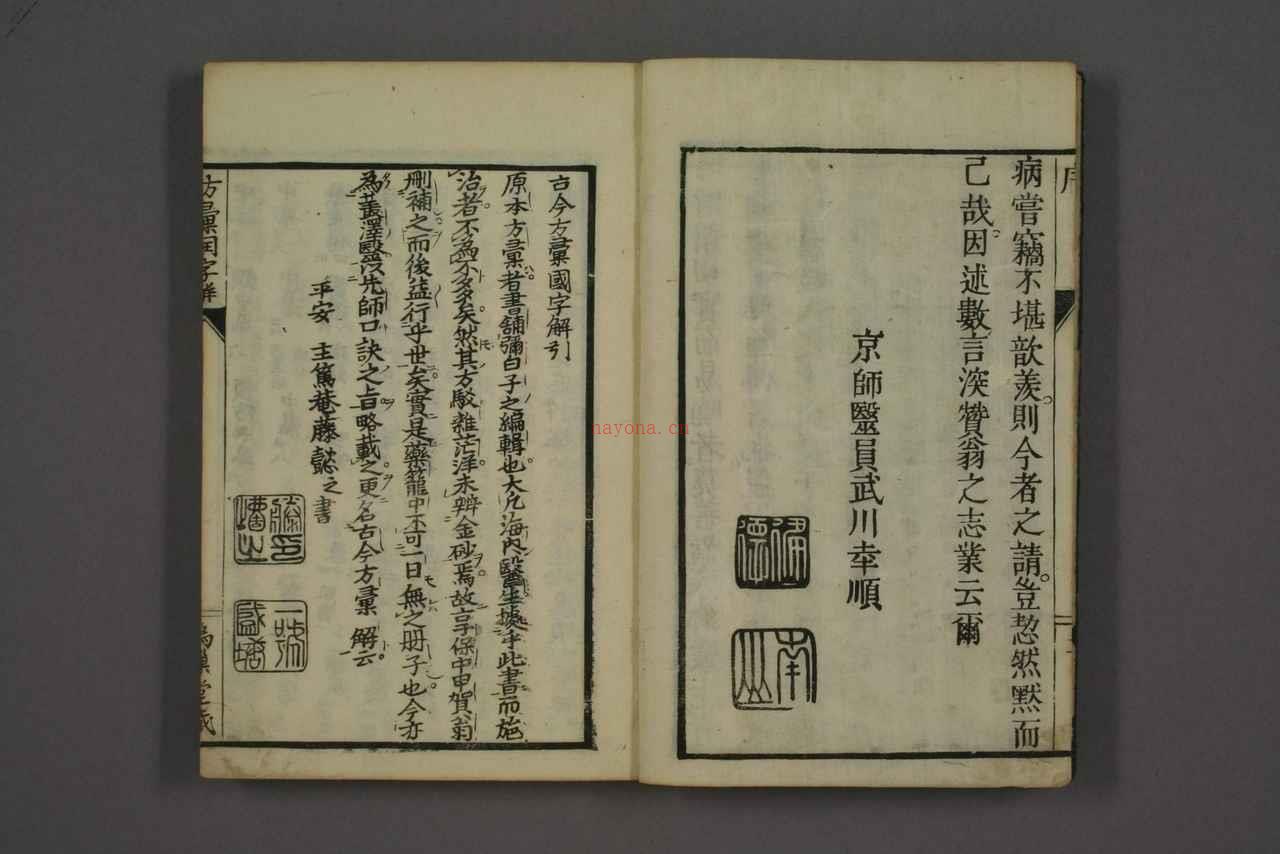 序
病嘗竊不堪歆羨則今者之請豈恝然默而
已哉因述數言深贊翁之志業云爾
京師毉員武川幸順
南山
古今方彙國字解引
原本方彙者書舖彌白子之編輯也大凡海內毉生據乎此書而施
治者不為不多矣然其方駁雜茫洋未辨金砂焉故享保中甲賀翁
刪補之而後益行乎世矣實是藥籠中不可一日無之册子也今亦
為蓋澤毉以先師口訣之旨略載之更名古今方彙解云
平安 主篤菴藤懿之書
方彙国字解
nayona.cn